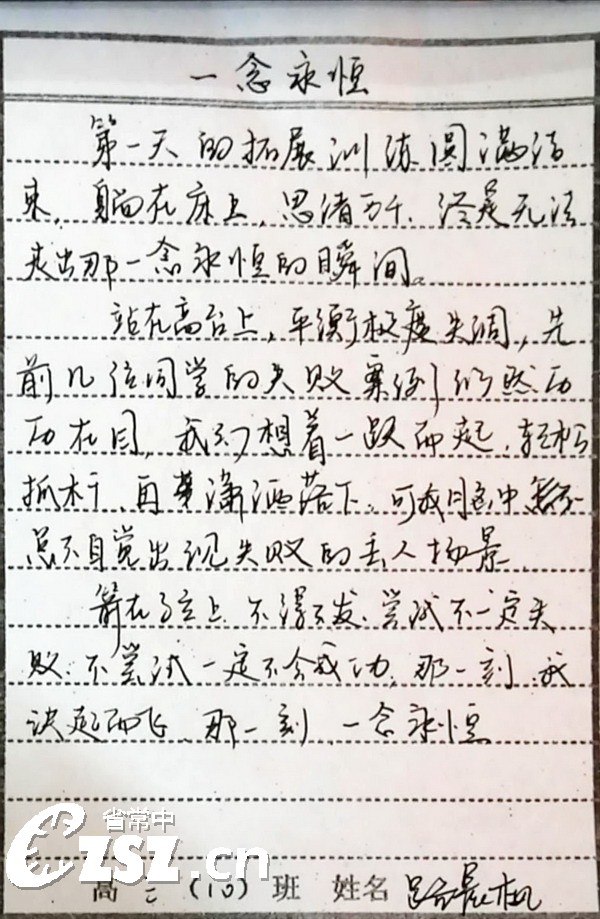 一念永恒
第一天的拓展训练圆满结
束，躺在床上，思绪万千，终是无法
走出那一念永恒的瞬间。
站在高台上，平衡极度失调，先
前几位同学的失败案例仍然历
历在目，我幻想着一跃而起，轻松
抓杆，再潇洒落下，可我脑中
总不自觉出现失败的丢人场景，
箭在弦上，不得不发，尝试不一定失
败，不尝试一定不会成功，那一刻，我
决起而飞，那一刻，一念永恒
省常中
CZSZ.cn
高二(10)班 姓名